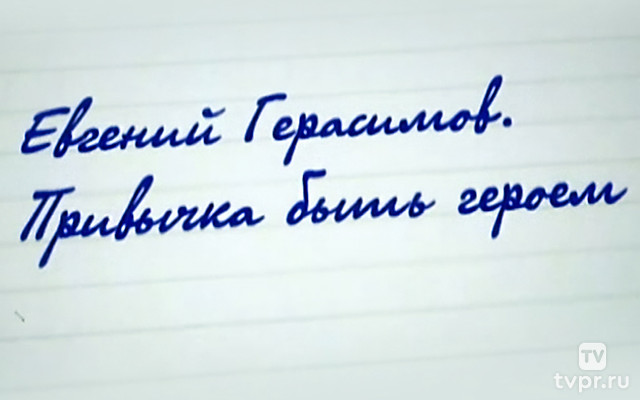 Евгений Герасимов.
Привычка быть героем
TV
tvpr.ru